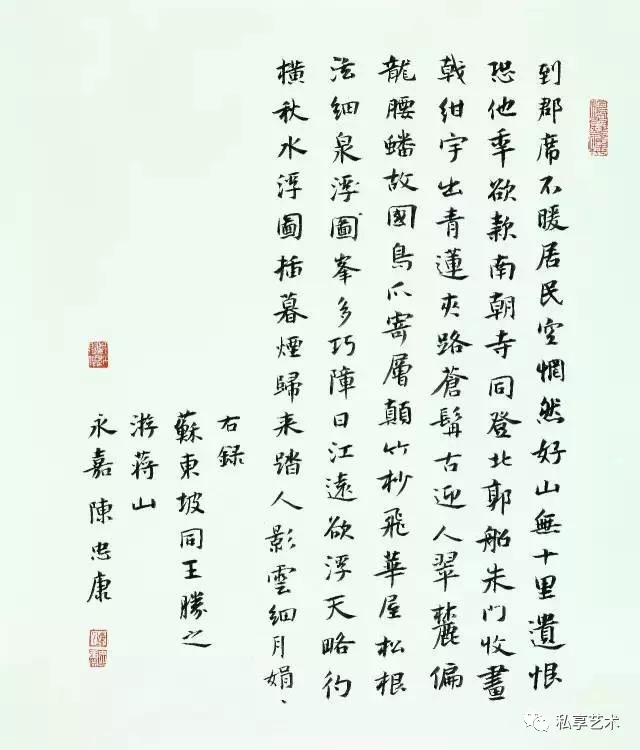 到郡席不暖居民空惘然好山無十里遺恨
恐他年欲款南朝寺同登北郭船朱門收畫
戟紺宇出青蓮夾路蒼髯古迎人翠麓偏
龍腰蟠故國鳥爪寄層顛竹杪飛華屋松根
泫細泉浮圖峯多巧障日江遠欲浮天略彴
橫秋水浮圖插暮煙歸来踏人影雲細月娟、
右録
蘇東坡同王勝之
游蔣山
永嘉陳忠康
私享艺术